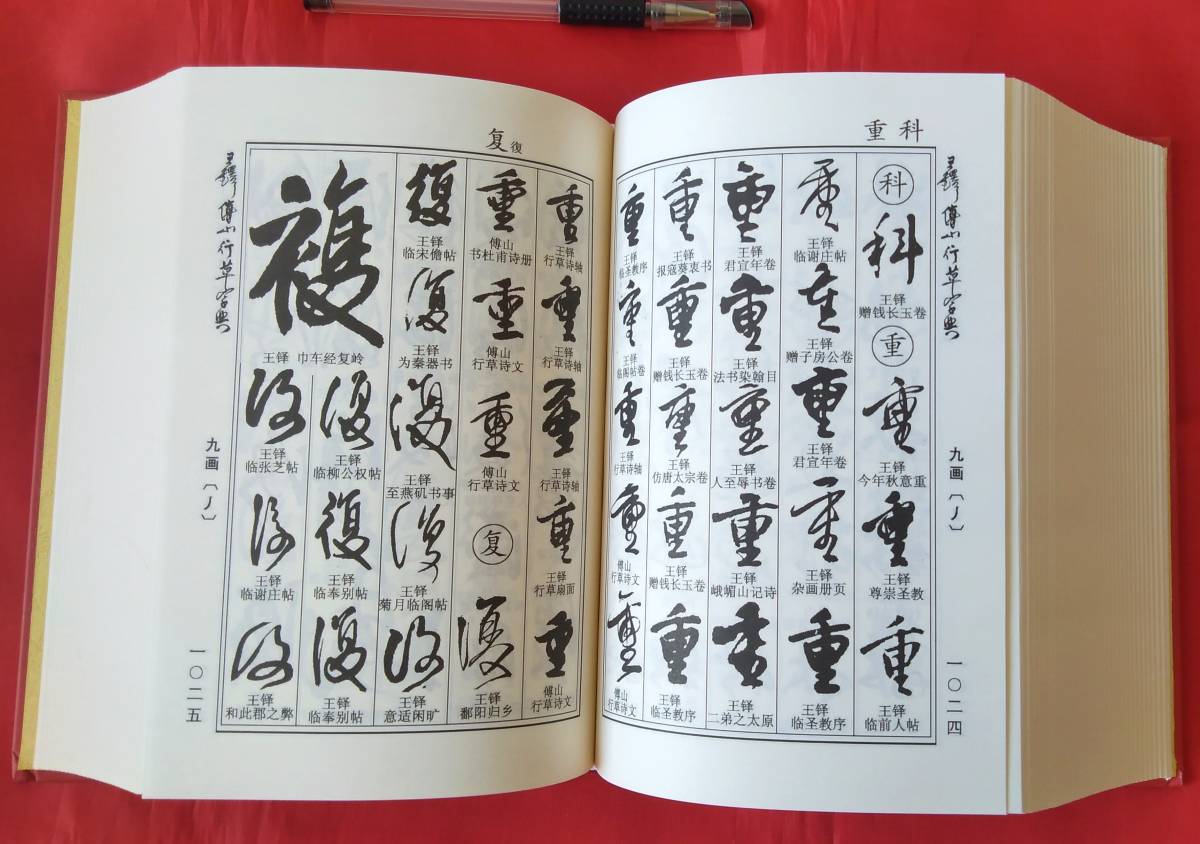 重科
王鐸傅山行草字典
九画〔丿〕
一〇二四
科
科
王铎
赠钱长玉卷
重
重
王铎
今年秋意重
重
王铎
尊崇圣教
重
王铎
临前人帖
重
王铎
临谢庄帖
重
王铎
赠子房公卷
重
王铎
君宣年卷
重
王铎
杂画册页
重
王铎
临圣教序
重
王铎
君宣年卷
重
王铎
法书染翰目
重
王铎
人至辱书卷
重
王铎
峨嵋山记诗
重
王铎
二弟之太原
重
王铎
报寇葵衷书
重
王铎
赠钱长玉卷
重
王铎
仿唐太宗卷
重
王铎
赠钱长玉卷
重
王铎
临圣教序
重
王铎
临圣教序
重
王铎
临阁帖卷
重
王铎
行草诗轴
重
傅山
行草诗文
重
傅山
行草诗文
复復
王鐸傅山行草字典
九画〔丿〕
一〇二五
重
王铎
行草诗轴
重
王铎
行草诗轴
重
王铎
行草诗轴
重
王铎
行草扇面
重
傅山
行草诗文
重
傅山
书杜甫诗册
重
傅山
行草诗文
重
傅山
行草诗文
复
復
王铎
鄱阳归乡
復
王铎
临宋儋帖
復
王铎
为秦器书
復
王铎
至燕矶书事
復
王铎
菊月临阁帖
復
王铎
意适闲旷
復
王铎 巾车经复岭
復
王铎
临柳公权帖
復
王铎
临奉别帖
復
王铎
临奉别帖
復
王铎
临张芝帖
復
王铎
临谢庄帖
復
王铎
和此郡之弊